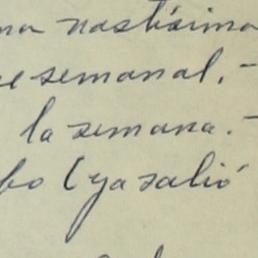 na nastísima
e semanal. -
la semana. -
bo (ya salió